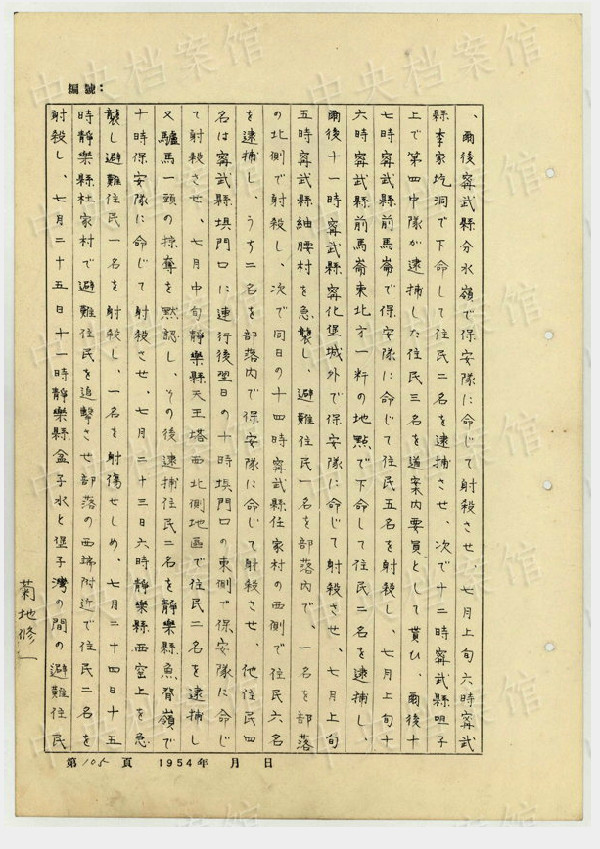 編號:
、爾後寗武縣分水嶺で保安隊に命じて射殺させ、七月上旬六時寗武
縣李家圪洞で下命して住民二名を逮捕させ、次で十二時寗武縣咀子
上で第四中隊が逮捕した住民三名を道案内要員として貰ひ、爾後十
七時寗武縣前馬崙で保安隊に命じて住民五名を射殺し、七月上旬十
六時寗武縣前馬崙東北方一粁の地點で下命して住民二名を逮捕し、
爾後十一時寗武縣寗化堡城外で保安隊に命じて射殺させ、七月上旬
五時寗武縣細腰村を急襲し、避難住民一名を部落内で、一名を部落
の北側で射殺し、次で同日の十四時寗武縣任家村の西側で住民六名
を逮捕し、うち二名を部落内で保安隊に命じて射殺させ、他住民四
名は寗武縣垻門口に連行後翌日の十時垻門口の東側で保安隊に命じ
て射殺させ、七月中旬靜樂縣天王塔西北側地區で住民二名を逮捕し
又驢馬一頭の掠奪を黙認し、その後逮捕住民二名を靜樂縣魚脊嶺で
十時保安隊に命じて射殺させ、七月二十三日六時靜樂縣西窑上を急
襲し避難住民一名を射殺し、一名を射傷せしめ、七月二十四日十五
時靜樂縣杜家村で避難住民を追擊させ部落の西端附近で住民二名を
射殺し、七月二十五日十一時靜樂縣盆子水と堡子灣の間の避難住民
菊地修一
第105頁 1954年 月 日
中央档案馆